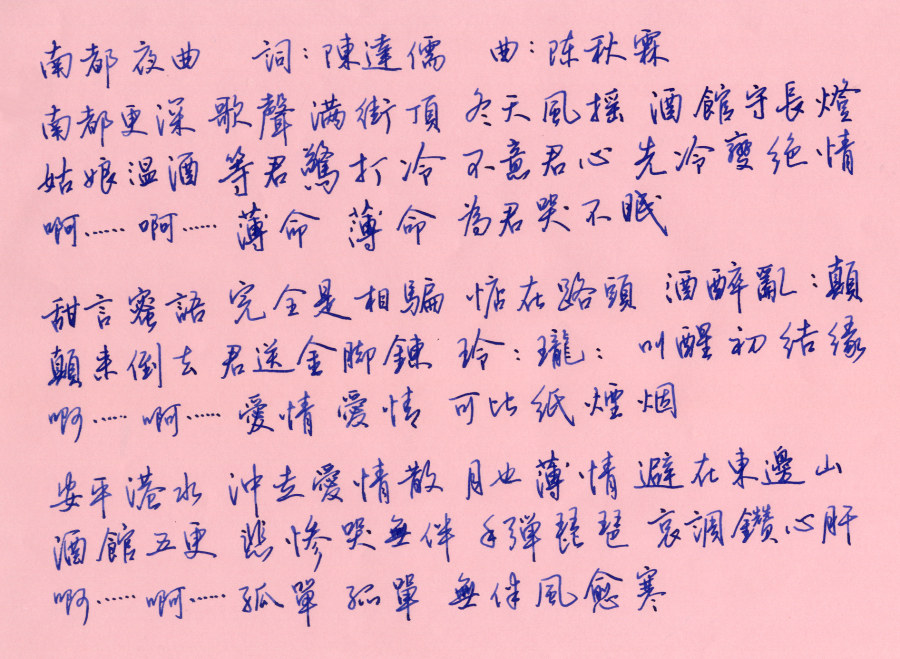 南都夜曲 詞:陳達儒 曲:陈秋霖
南都更深 歌聲满街頂 冬天風摇 酒館守長燈
姑娘温酒 等君驚打冷 不意君心 先冷變絶情
啊…… 啊…… 薄命 薄命 為君哭不眠
甜言蜜語 完全是相騙 惦在路頭 酒醉亂:顛
顛来倒去 君送金脚鍊 玲:瓏: 叫醒初結缘
啊…… 啊…… 愛情 愛情 可比紙煙烟
安平港水 沖走愛情散 月也薄情 避在東邊山
酒館五更 悲惨哭無伴 手弹琵琶 哀調鑽心肝
啊…… 啊…… 孤單 孤單 無伴風愈寒